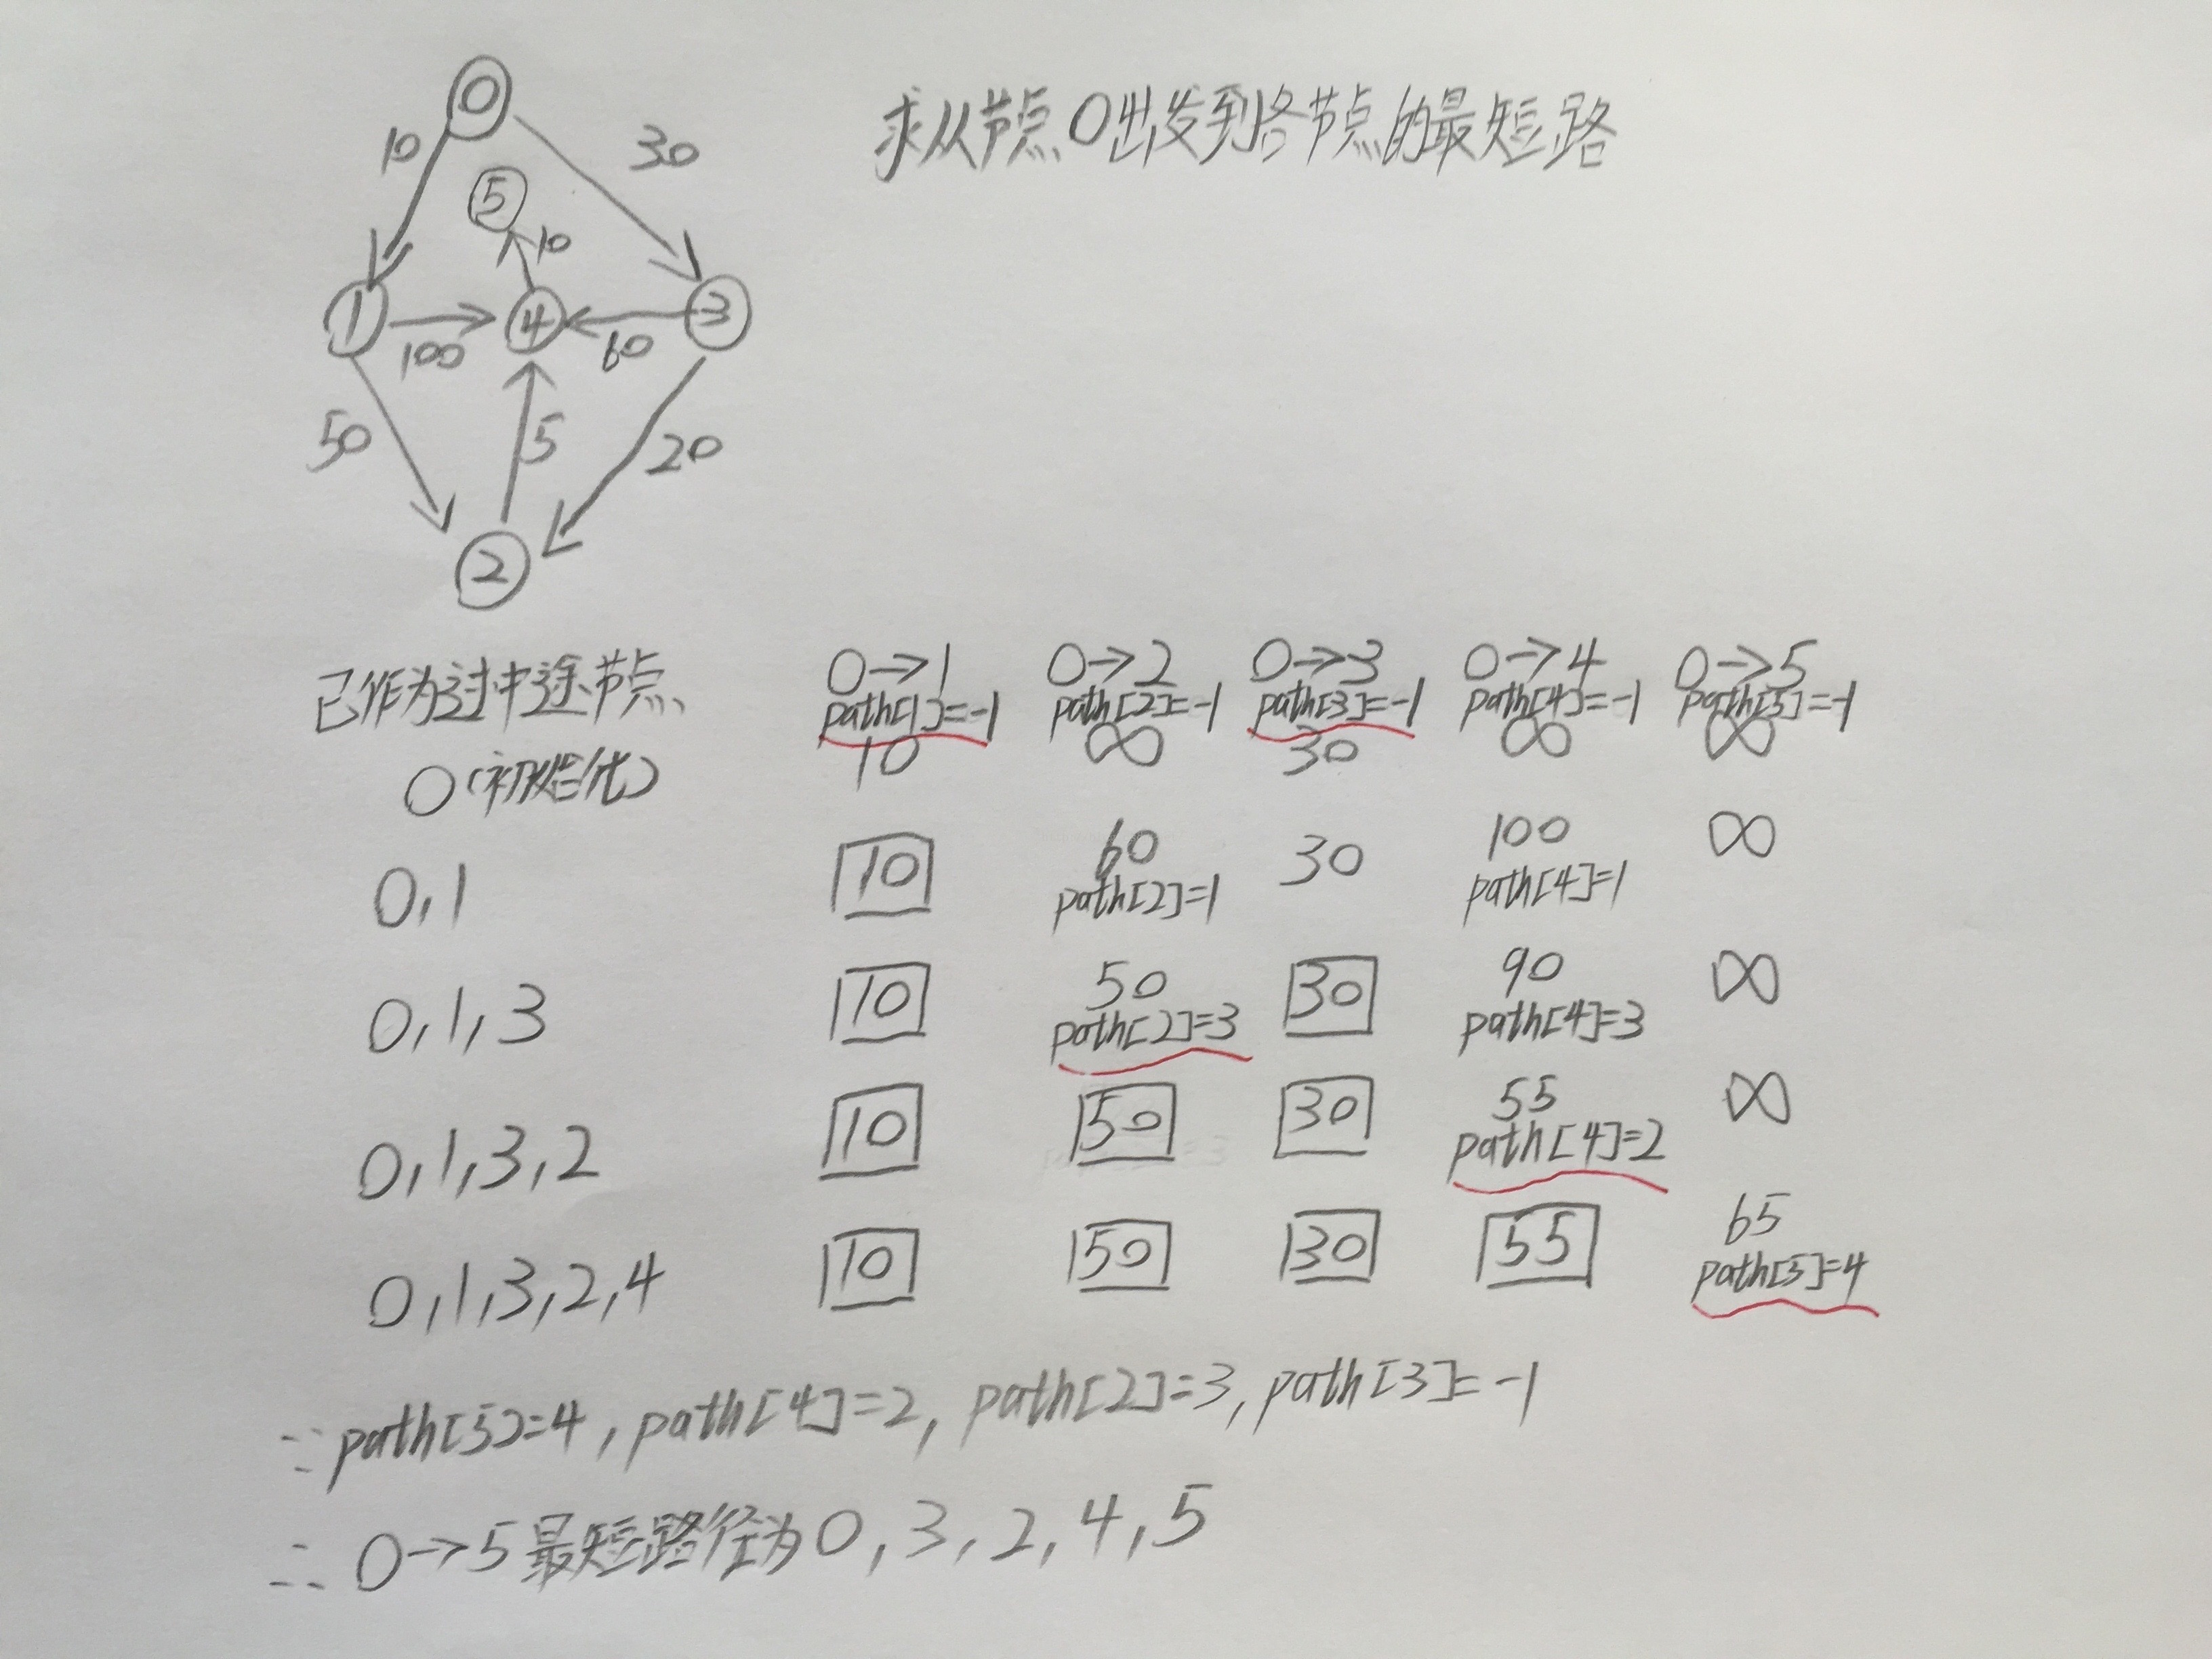 0
求从节点0出发到各节点的最短路
10 30
5
10
1 4 3
100 60
50 5 20
2
已作为过中途节点 0→1 0→2 0→3 0→4 0→5
path[1]=-1 path[2]=-1 path[3]=-1 path[4]=-1 path[5]=-1
0(初始化) 10 ∞ 30 ∞ ∞
0,1 10 60 30 100 ∞
path[2]=1 path[4]=1
0,1,3 10 50 30 90 ∞
path[2]=3 path[4]=3
0,1,3,2 10 50 30 55 ∞
path[4]=2
0,1,3,2,4 10 50 30 55 65
path[5]=4
∵path[5]=4,path[4]=2,path[2]=3,path[3]=-1
∴0→5最短路径为0,3,2,4,5